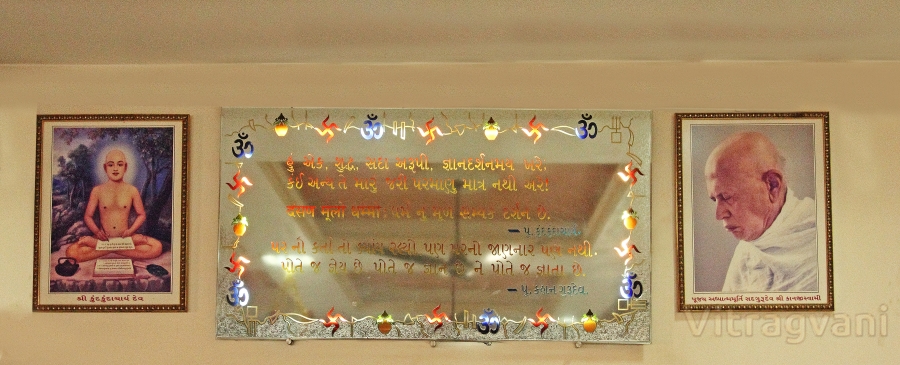 હું એક, શુદ્ધ, સદા અરૂપી, જ્ઞાનદર્શનમય ખરે;
કંઈ અન્ય તે મારું જરી પરમાણુ માત્ર નથી અરે!
દંસણ મૂલો ધમ્મો: ધર્મ નું મૂળ સમ્યક દર્શન છે.
પર નો કર્તા તો પણ પરનો જાણનાર પણ નથી.
પોતે જ જ્ઞેય છે પોતે જ જ્ઞાન છે ને પોતે જ જ્ઞાતા છે.
— પૂ. કહાન ગુરૂદેવ.
શ્રી કુંદકુંદાચાર્ય દેવ
પૂજ્ય અધ્યાત્મમૂર્તિ સદ્ગુરુદેવ શ્રી કાનજીસ્વામી
vitragvani